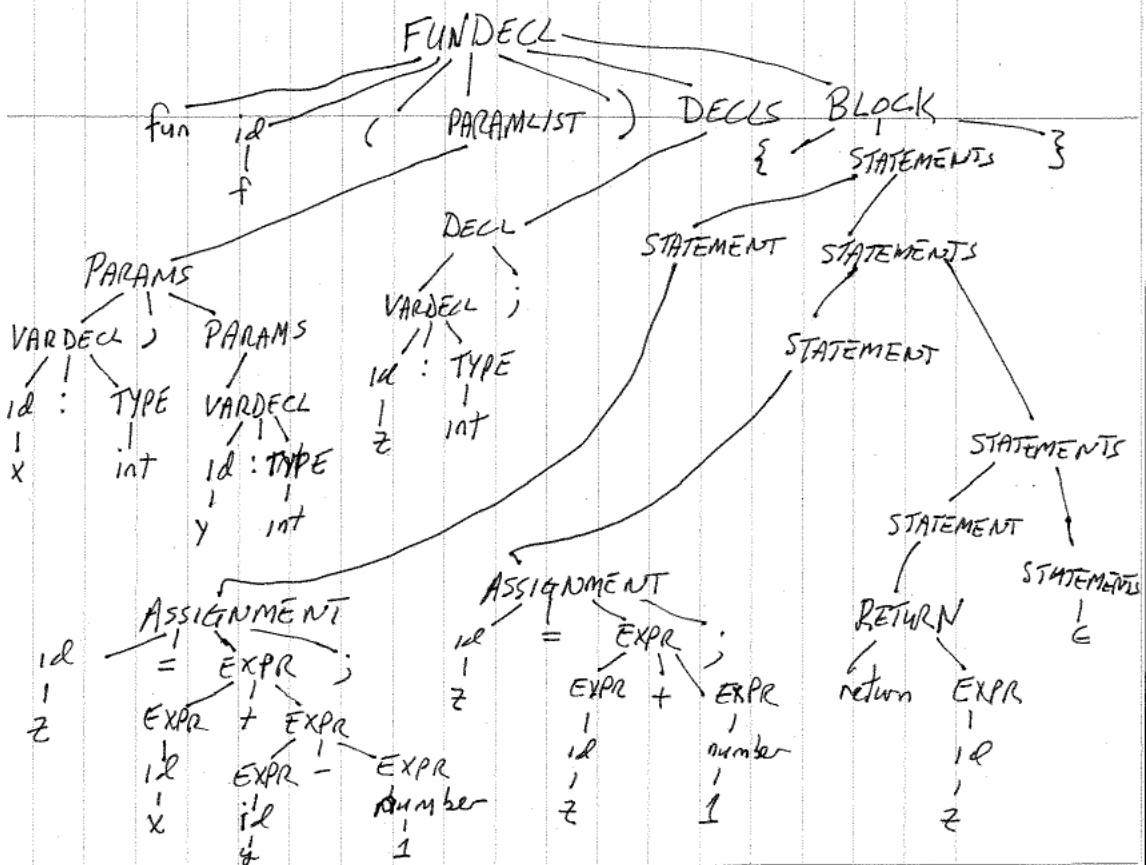 FUNDECL
fun id ( PARAMLIST ) DECLS BLOCK
f { STATEMENTS }
DECL STATEMENT STATEMENTS
PARAMS
VARDECL , PARAMS VARDECL ; STATEMENT
id : TYPE VARDECL id : TYPE
x int id : TYPE z int STATEMENTS
y int STATEMENT STATEMENTS
ASSIGNMENT ASSIGNMENT RETURN ϵ
id = EXPR ; id = EXPR ; return EXPR
z EXPR + EXPR z EXPR + EXPR id
id EXPR - EXPR id number z
x id number z 1
y 1